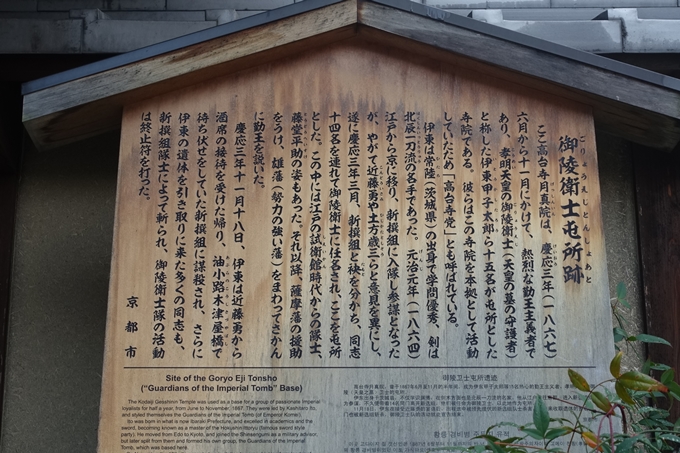 御陵衛士屯所跡
ごりょうえじとんしょあと
ここ高台寺月真院は、慶応三年(一八六七)
六月から十一月にかけて、熱烈な勤王主義者で
あり、孝明天皇の御陵衛士(天皇の墓の守護者)
と称した伊東甲子太郎ら十五名が屯所とした
寺院である。彼らはこの寺院を本拠として活動
していたため「高台寺党」とも呼ばれている。
伊東は常陸(茨城県)の出身で学問優秀、剣は
北辰一刀流の名手であった。元治元年(一八六四)
江戸から京に移り、新撰組に入隊し参謀となった
が、やがて近藤勇や土方歳三らと意見を異にし、
遂に慶応三年三月、新撰組と袂を分かち、同志
十四名を連れて御陵衛士に任名され、ここを屯所
とした。この中には江戸の試衛館時代からの隊士、
藤堂平助の姿もあった。それ以降、薩摩藩の援助
をうけ、雄藩(勢力の強い藩)をまわってさかん
に勤王を説いた。
慶応三年十一月十八日、伊東は近藤勇から
酒席の接待を受けた帰り、油小路木津屋橋で
待ち伏せをしていた新撰組に謀殺され、さらに
伊東の遺体を引き取りに来た多くの同志も、
新撰組隊士によって斬られ、御陵衛士隊の活動
は終止符を打った。
京都市
Site of the Goryo Eji Tonsho
("Guardians of the Imperial Tomb" Base)
The Kodaiji Gesshinin Temple was used as a base for a group of passionate imperial
loyalists for half a year, from June to November, 1867. They were led by Kashitaro Ito,
and styled themselves the Guardians of the Imperial Tomb (of Emperor Komei).
Ito was born in what is now Ibaraki Prefecture, and excelled in academics and the
sword, becoming known as a master of the Hokushinittoryu (famous sword style
party). He moved from Edo to Kyoto, and joined the Shinsengumi as a military advisor,
but later split from them and formed his own group, the Guardians of the Imperial
Tomb, which was based here.
御陵卫士屯所遗迹